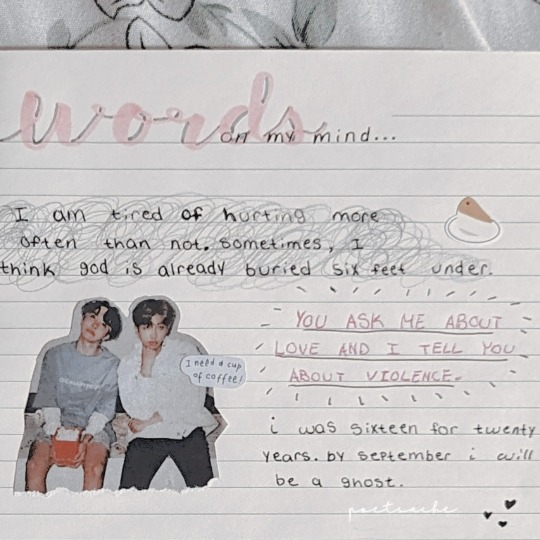 words
on my mind...
I am tired of hurting more
often than not. sometimes, I
think god is already buried six feet under.
YOU ASK ME ABOUT
LOVE AND I TELL YOU
ABOUT VIOLENCE.
I need a cup
of coffee!
i was sixteen for twenty
years. by september i will
be a ghost.